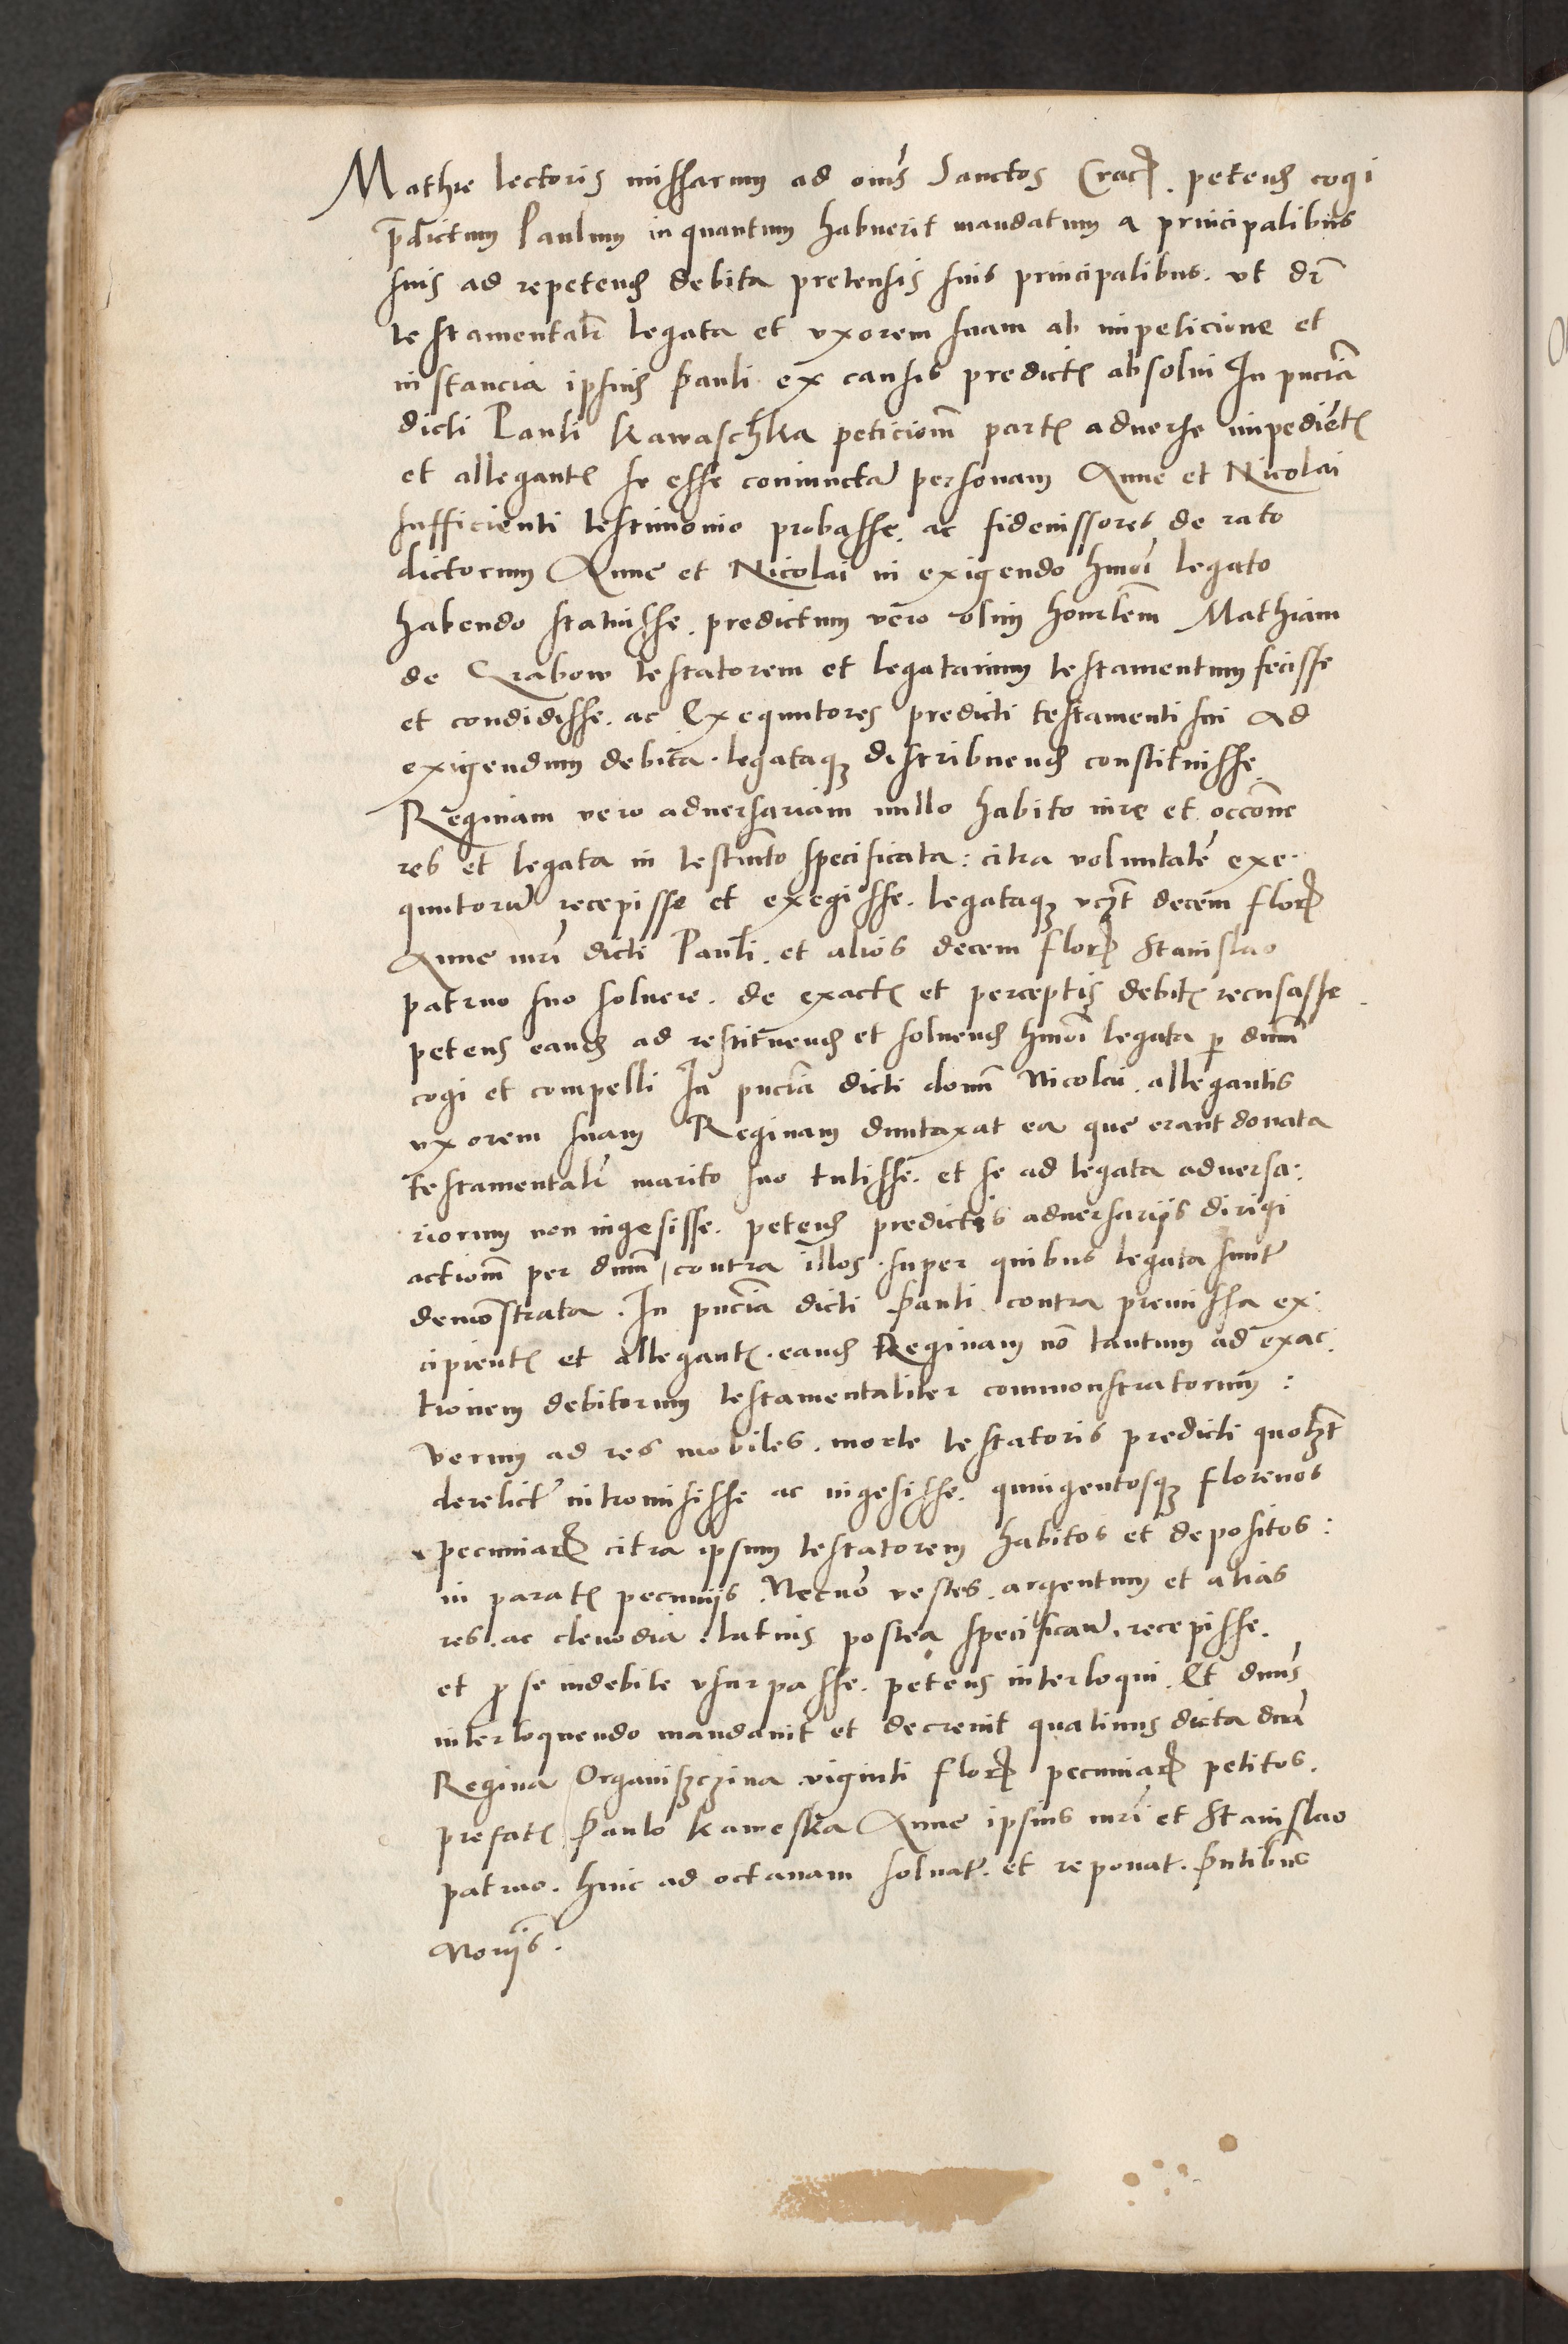 Mathie lectoris missarum ad om̄s Sanctos Crac̄. petens cogi
p̄dictum Paulum in quantum habuerit mandatum a principalibus
suis ad repetend̄ debita pretensis suis principalibus. vt dr̄
testamentalr̄ legata et vxorem suam ab impeticione et
instancia ipsius Pauli ex causis predictꝭ absolui In pn̄cia
dicti Pauli Kawaschka peticiom̄ partꝭ aduerse impediētꝭ
et allegantꝭ se esse coniunctā personam Anne et Nicolai
sufficienti testimonio probasse. ac fideiussores de rato
dictorum Anne et Nicolai in exigendo hmōi legato
habendo statuisse. predictum vero olim honrlem̄ Mathiam
de Grabow testatorem et legatarium testamentum fecisse
et condidisse. ac Exequutores predicti testamenti sui ad
exigendum debita. legataqꝫ distribuend̄ constituisse.
Reginam vero aduersariam nullo habito iure et occōne
res et legata in testm̄to specificata: citra voluntatē exe-
quutorū recepisse et exegisse. legataqꝫ vcꝫt decem flor̄
Anne mr̄i dicti Pauli. et alios decem flor̄ Stanislao
patruo suo soluere. de exactꝭ et perceptis debitꝭ recusasse.
petens eand̄ ad restituend̄ et soluend̄ hmōi legata ꝑ dnm̄
cogi et compelli In pn̄cia dicti domī Nicolai. allegantis
vxorem suam Reginam duntaxat ea que erant donata
testamentalr̄ marito suo tulisse. et se ad legata aduersa:
riorum non ingesisse. petens predictis aduersarijs dirigi
actiom̄ per dnm̄ contra illos. super quibus legata sunt
demōstrata. In pn̄cia dicti Pauli contra premissa ex:
cipientꝭ et allegantꝭ. eand̄ Reginam nō tantum ad exac:
tionem debitorum testamentaliter commonstratorum:
verum ad res mobiles. morte testatoris predicti quolꝫt
derelictꝭ intromisisse ac ingesisse. quingentosqꝫ florenos
pecuniar̄ citra ipsum testatorem habitos et depositos:
in paratꝭ pecunijs. Necnō vestes. argentum et alias
res. ac clenodia. latius postea specificatꝭ. recepisse.
et ꝓ se indebite vsurpasse. petens interloqui. Et dnus̄
interloquendo mandauit et decreuit quatinus dicta dnā
Regina Organisczina viginti flor̄ pecuniar̄ petitos.
prefatꝭ Paulo Kaweska Anne ipsius mr̄i et Stanislao
patruo. hinc ad octauam soluat. et reponat. Pn̄tibus
Norijs.